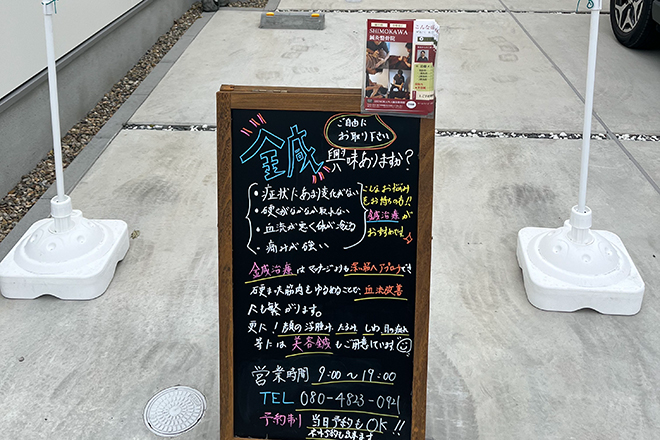 SHIMOKAWA
鍼灸整骨院
ご自由に
お取り下さい
鍼 興味ありますか?
・症状にあまり変化がない
・硬くがなかなか取れない
・血流が悪く体が冷たい
・痛みが強い
こんなお悩み
をお持ちの方!!
鍼治療が
おすすめです
鍼治療はマッサージよりも深い筋へアプローチでき
硬まった筋肉もゆるめることで、血流改善
にも繋がります。
更に!顔の浮腫み、たるみ しわ 目の疲れ
等には美容鍼もご用意しています
営業時間 9:00〜19:00
TEL 080-4823-0921
予約制 当日予約もOK!!
ネット予約も出来ます